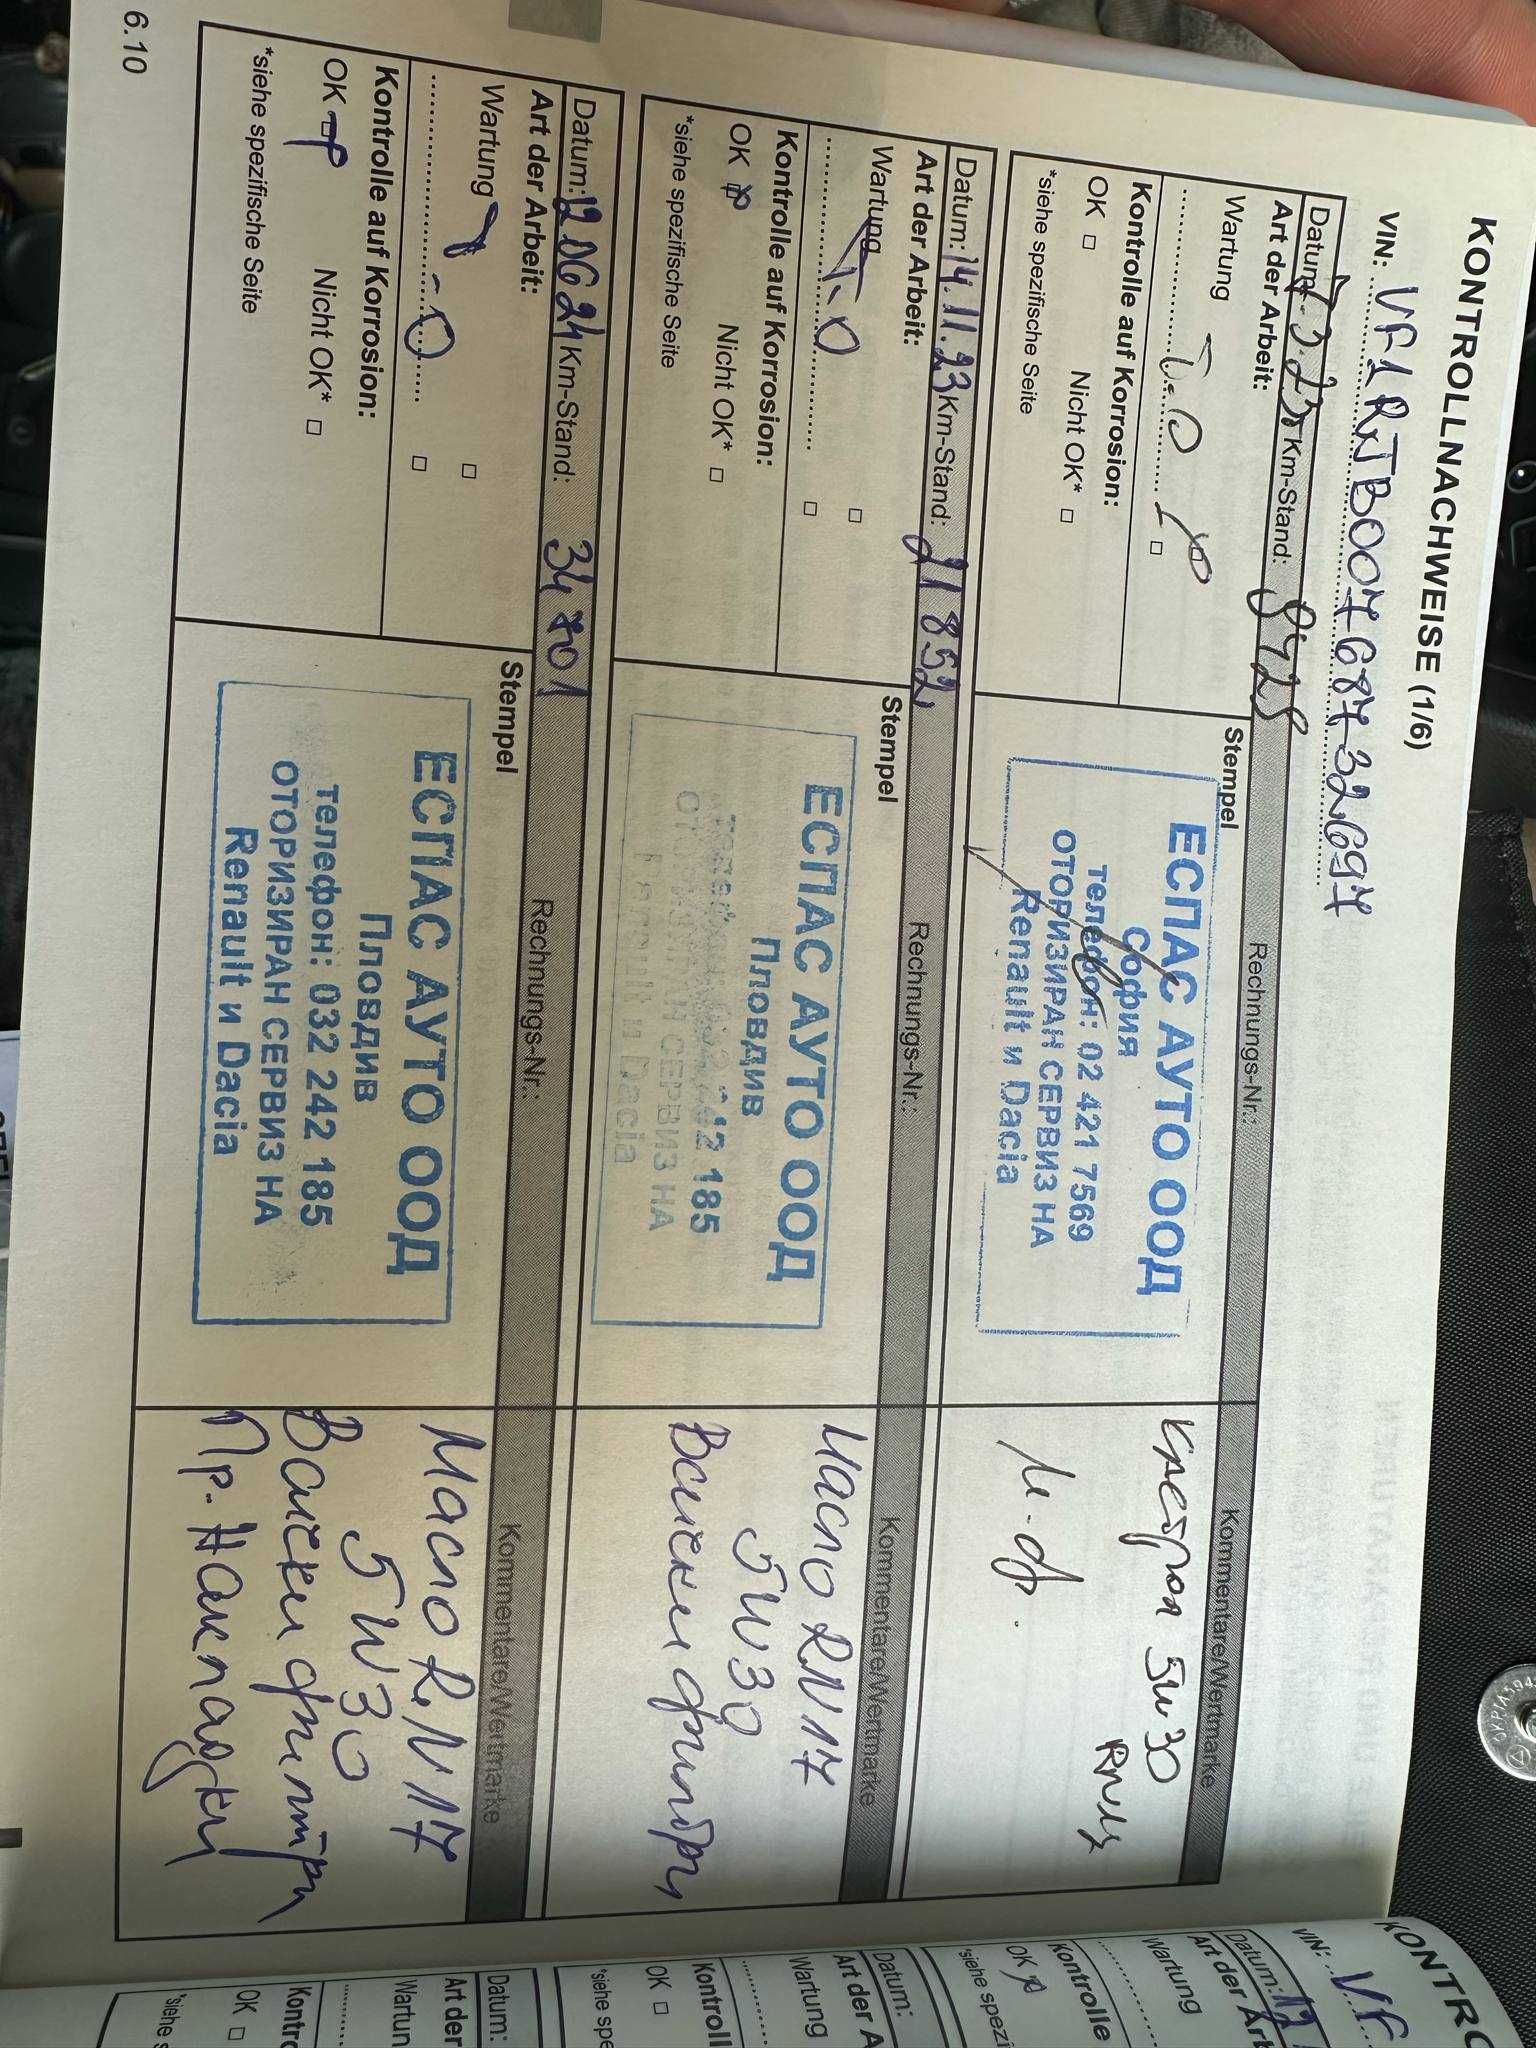 KONTROLLNACHWEISE (1/6)
VIN: VF1RJB00768732697
Km-Stand: 9428 Rechnungs-Nr.: Kommentare/Wertmarke
Art der Arbeit:
Wartung
Т.О
Kontrolle auf Korrosion:
OK □ Nicht OK* □
*siehe spezifische Seite
Stempel
ЕСПАС АУТО ООД
София
телефон: 02 421 7569
ОТОРИЗИРАН СЕРВИЗ НА
Renault и Dacia
Кастрол 5w30
RN17
М.ф.
Datum: 14.11.23 Km-Stand: 21852 Rechnungs-Nr.: Kommentare/Wertmarke
Art der Arbeit:
Wartung □
Т.О □
Kontrolle auf Korrosion:
OK Nicht OK* □
*siehe spezifische Seite
Stempel
ЕСПАС АУТО ООД
Пловдив
телефон: 032 242 185
ОТОРИЗИРАН СЕРВИЗ НА
Renault и Dacia
Масло RN17
5W30
Всички филтри
Datum: 12 06 24 Km-Stand: 34701 Rechnungs-Nr.: Kommentare/Wertmarke
Art der Arbeit:
Wartung □
Т.О □
Kontrolle auf Korrosion:
OK Nicht OK* □
*siehe spezifische Seite
Stempel
ЕСПАС АУТО ООД
Пловдив
телефон: 032 242 185
ОТОРИЗИРАН СЕРВИЗ НА
Renault и Dacia
Масло RN17
5W30
Всички филтри
Пр. Накладки
6.10
KONTRO
VIN: VF
Datum:
Art der Arb
Wartung
Kontrolle
OK
*siehe spezi
Datum:
Art der A
Wartung
Kontroll
OK □
*siehe spe
Datum:
Art der
Wartun
Kontro
OK □
*siehe s